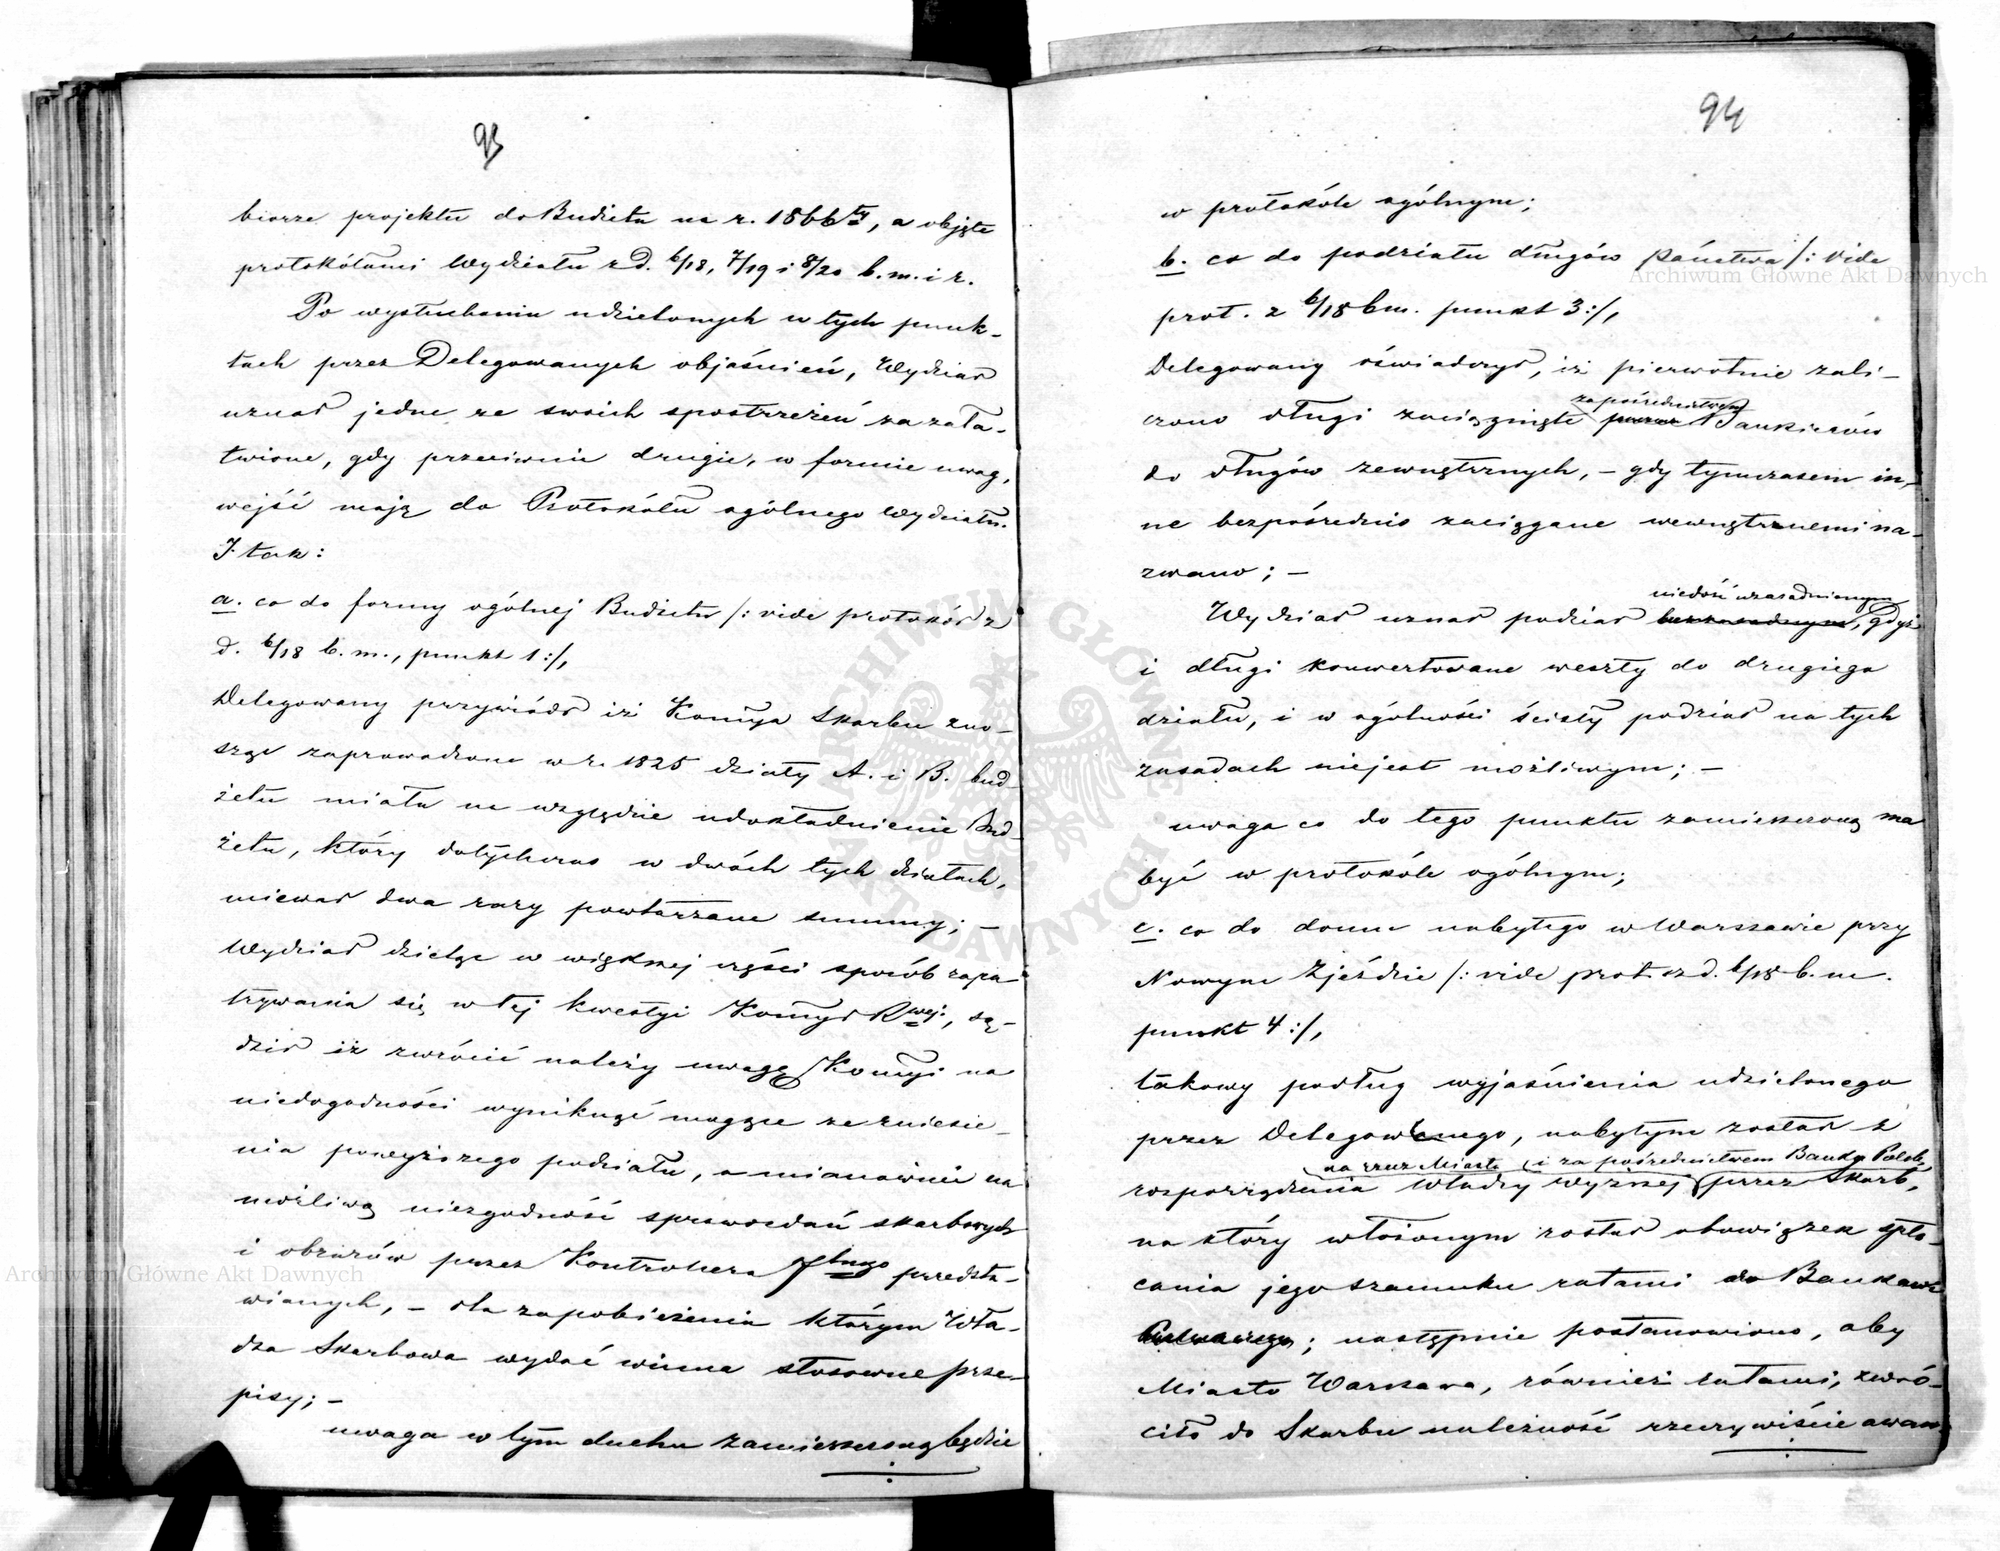 93
biorze projektu do Budżetu na r. 1866ty, a objęte
protokółami Wydziału z d. 6/18, 7/19 i 8/20 b.m. i r.
Po wysłuchaniu udzielonych w tych punk-
tach przez Delegowanych objaśnień, Wydział
uznał jedne ze swoich spostrzeżeń za zała-
twione, gdy przeciwnie drugie, w formie uwag,
wejść mają do Protokółu ogólnego Wydziału.
I tak:
a. co do formy ogólnej Budżetu /: vide protokół z
d. 6/18 b.m., punkt 1 :/,
Delegowany przywiódł iż Kommya Skarbu zno-
sząc zaprowadzone w r. 1825 działy A. i B. bud-
żetu miała na względzie udokładnienie Bud-
żetu, który dotychczas w dwóch tych działach,
miewał dwa razy powtarzane summy; -
Wydział dzieląc w większej części sposób zapa-
trywania się w tej kwestyi Kommyi Rwej., są-
dził iż zwrócić należy uwagę Kommyi na
niedogodności wyniknąć mogące ze zniesie-
nia powyższego podziału, a mianowicie na
możliwą niezgodność sprawozdań skarbowych
i obrazów przez Kontrollera Jlnego przedsta-
wianych, - dla zapobieżenia którym Wła-
dza Skarbowa wydać winna stosowne prze-
pisy; -
uwaga w tym duchu zamieszczoną będzie
94
w protokóle ogólnym;
b. co do podziału długów Państwa /: vide
prot. z 6/18 bm. punkt 3 :/,
Delegowany oświadczył, iż pierwotnie zali-
za pośrednictwem
czono długi zaciągnięte przez Bankierów
do długów zewnętrznych, - gdy tymczasem in-
ne bezpośrednio zaciągane wewnętrznemi na-
zwano; -
niedość uzasadnionym
Wydział uznał podział bezzasadnym, gdyż
i długi konwertowane weszły do drugiego
działu, i w ogólności ścisły podział na tych
zasadach niejest możliwym; -
uwaga co do tego punktu zamieszczoną ma
być w protokóle ogólnym;
c. co do domu nabytego w Warszawie przy
Nowym Zjeździe /: vide prot. z d. 6/18 b.m.
punkt 4 :/,
takowy podług wyjaśnienia udzielonego
przez Delegowanego, nabytym został z
na rzecz Miasta i za pośrednictwem Banku Polsk.
rozporządzenia Władzy wyższej przez Skarb,
na który włożonym został obowiązek spła-
cania jego szacunku ratami do Banku
; następnie postanowiono, aby
Miasto Warszawa, również ratami, zwró-
ciło do Skarbu należność rzeczywiście awan-
Archiwum Główne Akt Dawnych
Archiwum Główne Akt Dawnych
ARCHIWUM GŁÓWNE AKT DAWNYCH